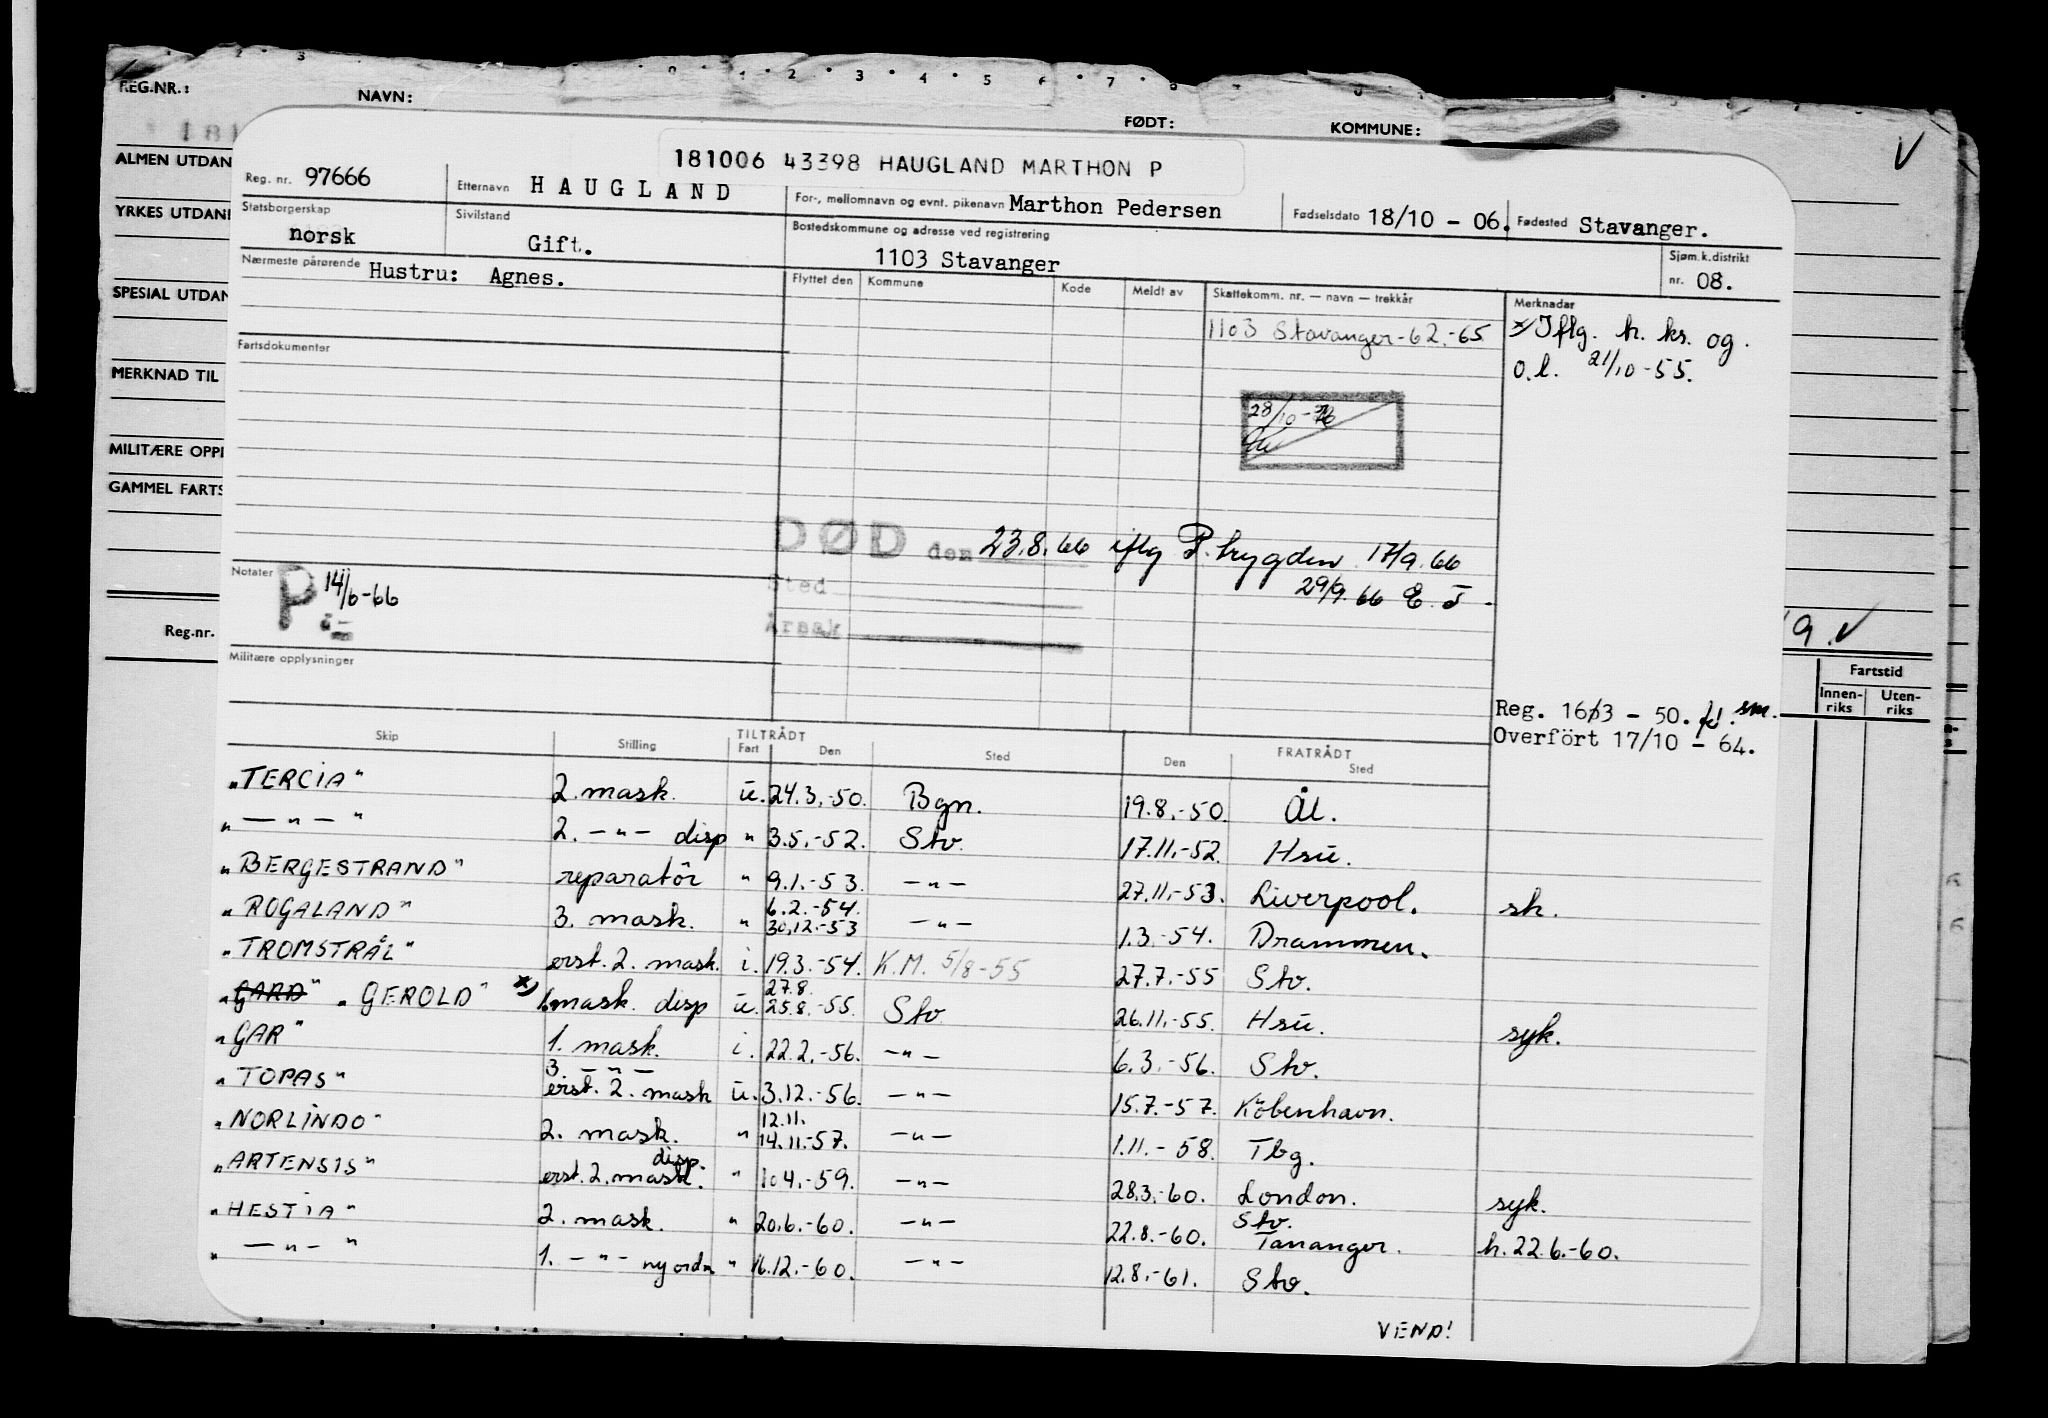 REG.NR.: NAVN: FØDT: KOMMUNE:
181006 43398 HAUGLAND MARTHON P
ALMEN UTDAN
YRKES UTDAN
SPESIAL UTDAN
MERKNAD TIL
MILITÆRE OPPL
GAMMEL FARTS
Reg.nr.
Reg. nr. 97666 Etternavn HAUGLAND For-, mellomnavn og evnt. pikenavn Marthon Pedersen Fødselsdato 18/10 - 06. Fødested Stavanger.
Statsborgerskap norsk Sivilstand Gift. Bostedskommune og adresse ved registrering 1103 Stavanger Sjøm.k.distrikt nr. 08.
Nærmeste pårørende Hustru: Agnes. Flyttet den Kommune Kode Meldt av Skattekomm. nr. — navn — trekkår Merknader
1103 Stavanger - 62.-65
x) Iflg. h. ks. og
o.l. 21/10-55.
Fartsdokumenter
28/10-
DØD den 23.8.66 iflg P. trygden 17/9.66
Sted 29/9.66 E.J.
Årsak
Notater P 14/6-66
Militære opplysninger
9.
Fartstid
Innen-riks Uten-riks
Reg. 16/3 - 50. fd. sm.
Overfört 17/10 - 64.
Skip Stilling TILTRÅDT Fart Den Sted FRATRÅDT Den Sted
"TERCIA" 2. mask. u. 24.3.-50. Bgn. 19.8.-50. Ål.
" — " — " 2. — " — disp " 3.5.-52. Stv. 17.11.-52. Hsu.
"BERGESTRAND" reparatör " 9.1.-53. — " — 27.11.-53. Liverpool. sk.
"ROGALAND" 3. mask. " 6.2.-54. 30.12.-53 — " — 1.3.-54. Drammen.
"TROMSTRÅL" erst. 2. mask. i. 19.3.-54. K.M. 5/8-55 27.7.-55 Stv.
"GARD" "GEROLD" x) 1. mask. disp u. 27.8. 25.8.-55. Stv 26.11.-55. Hsu. syk.
"GAR" 1. mask. i. 22.2.-56. — " — 6.3.-56. Stv.
"TOPAS" 3. — " — erst. 2. mask u. 3.12.-56. — " — 15.7.-57. Köbenhavn.
"NORLINDO" 2. mask. " 12.11. 14.11.-57. — " — 1.11.-58. Tbg.
"ARTENSIS" erst. 2. mask. disp. " 104.-59. — " — 28.3.-60. London. syk.
"HESTIA" 2. mask. " 20.6.-60. — " — 22.8.-60. Stv. Tananger. h. 22.6.-60.
" — " — " 1. — " — ny ordn " 16.12.-60. — " — 12.8.-61. Stv.
VEND!